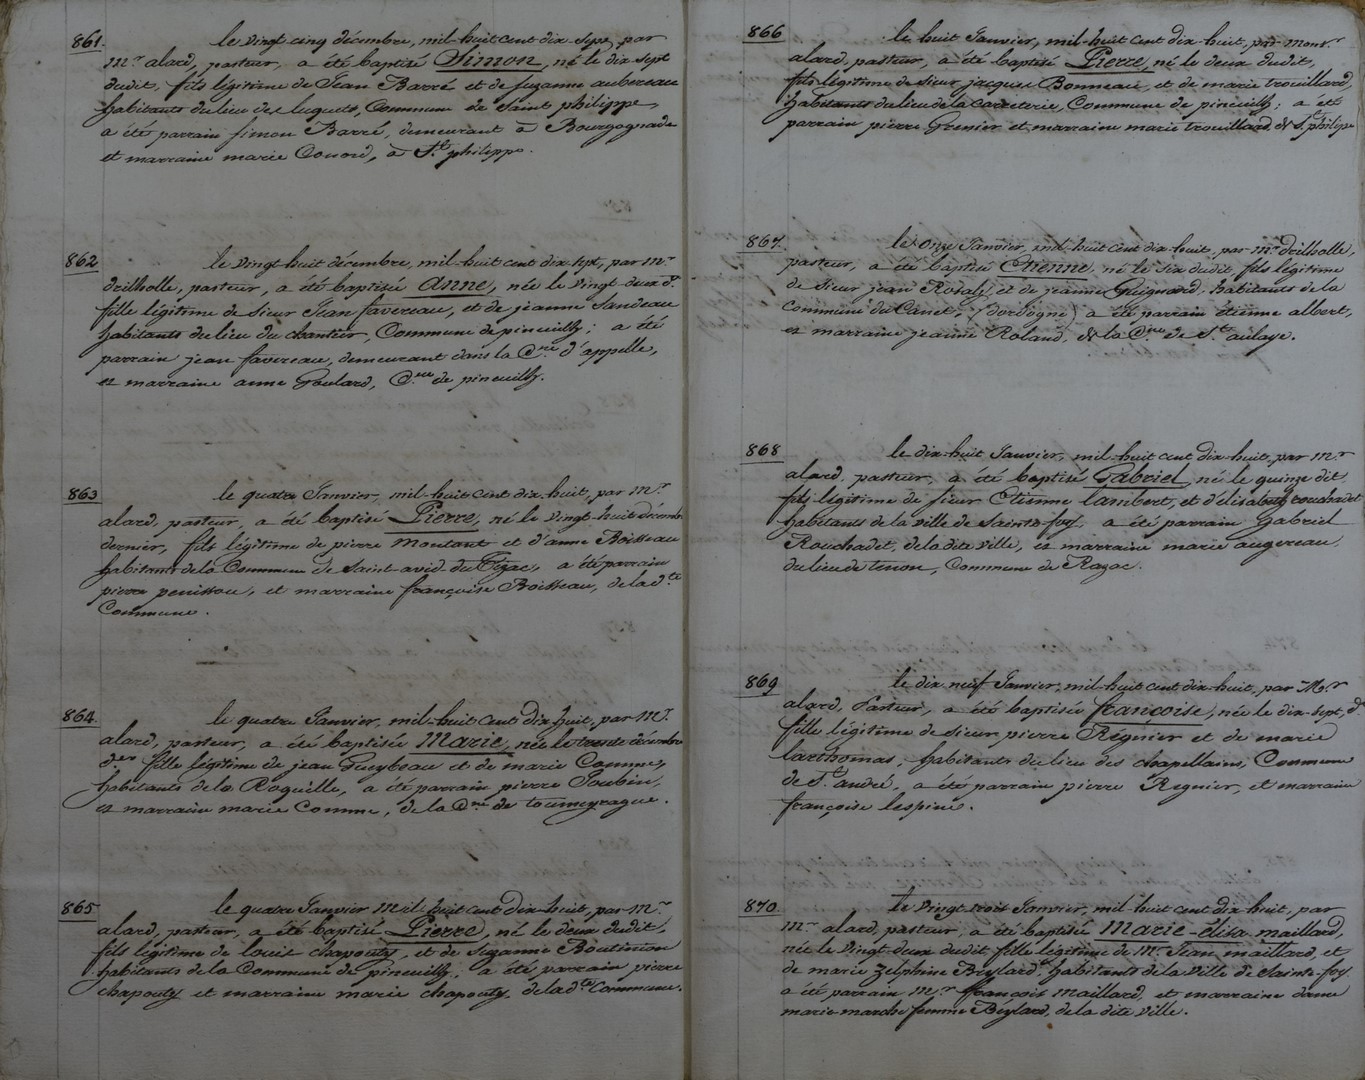 861. le vingt cinq décembre, mil-huit cent dix-sept, par
mr. alard, pasteur, a été baptisé Simon, né le dix sept
dudit, fils légitime de Jean Barré et de suzanne aubereau
habitants du lieu des luquets, Commune de Saint philippe
a été parrain simon Barré, demeurant à Bourgognade
et marraine marie Couord, à St. philippe.
862 le vingt-huit décembre, mil-huit cent dix-sept, par mr.
drilholle, pasteur, a été baptisée anne, née le vingt-deux d.
fille légitime de sieur Jean favereau, et de jeanne Sandeau
habitants du lieu du chantier, Commune de pineuilh; a été
parrain jean favereau, demeurant dans la Cne. d'appelle,
et marraine anne Goulard, Cne. de pineuilh.
863 le quatre Janvier, mil-huit cent dix-huit, par mr.
alard, pasteur, a été baptisé Pierre, né le vingt-huit décembre
dernier, fils légitime de pierre moutant et d'anne Boisseau
habitants de la Commune de Saint avid du Tizac, a été parrain
pierre penissou, et marraine françoise Boisseau, de la dte
Commune.
864 le quatre Janvier, mil-huit cent dix-huit, par mr.
alard, pasteur, a été baptisée Marie, née le trente décembre
der fille légitime de jean Puybeau et de marie Comme,
habitants de la Roquille, a été parrain pierre Joubin,
et marraine marie Comme, de la Cne. de toumeyrague.
865 le quatre Janvier mil huit cent dix-huit, par mr.
alard, pasteur, a été baptisé Pierre, né le deux dudit,
fils légitime de louis chapouty, et de Suzanne Boutinon
habitants de la Commune de pineuilh, a été parrain pierre
chapouty et marraine marie chapouty, de la dte Commune.
866 le huit Janvier, mil-huit cent dix-huit, par monsr.
alard, pasteur, a été baptisé Pierre, né le deux dudit,
fils légitime de sieur jacques Bonneau, et de marie trouillard,
habitants du lieu de la Carreterie, Commune de pineuilh; a été
parrain pierre Grenier et marraine marie trouillard, de St. philippe
867. le onze Janvier, mil-huit cent dix-huit, par mr. drilholle,
pasteur, a été baptisé Etienne, né le six dudit, fils légitime
de sieur jean Rosaly, et de jeanne Guignard, habitants de la
Commune du Canet, (dordogne) a été parrain étienne albert,
et marraine jeanne Roland, de la Cne. de St. aulaye.
868 le dix-huit Janvier, mil-huit cent dix-huit, par mr.
alard, pasteur, a été baptisé Gabriel, né le quinze dit
fils légitime de sieur Etienne lambert, et d'élisabeth rouchadet
habitants de la ville de Sainte-foy, a été parrain Gabriel
Rouchadet, de la dite ville, et marraine marie augereau,
du lieu de tenon, Commune de Razac.
869 le dix neuf Janvier, mil-huit cent dix-huit, par Mr.
alard, Pasteur, a été baptisée françoise, née le dix-sept, d.
fille légitime de sieur pierre Régnier et de marie
larthomas, habitants du lieu des chapellains, Commune
de St. andré, a été parrain pierre Regnier, et marraine
françoise lespine.
870. le vingt trois Janvier, mil-huit cent dix huit, par
mr. alard, pasteur, a été baptisée Marie-élisa maillard,
née le vingt-deux dudit, fille légitime de Mr. Jean maillard, et
de marie Zelphine Beylard, habitants de la ville de Sainte-foy,
a été parrain mr. françois maillard, et marraine dame
marie marche femme Beylard, de la dite ville.